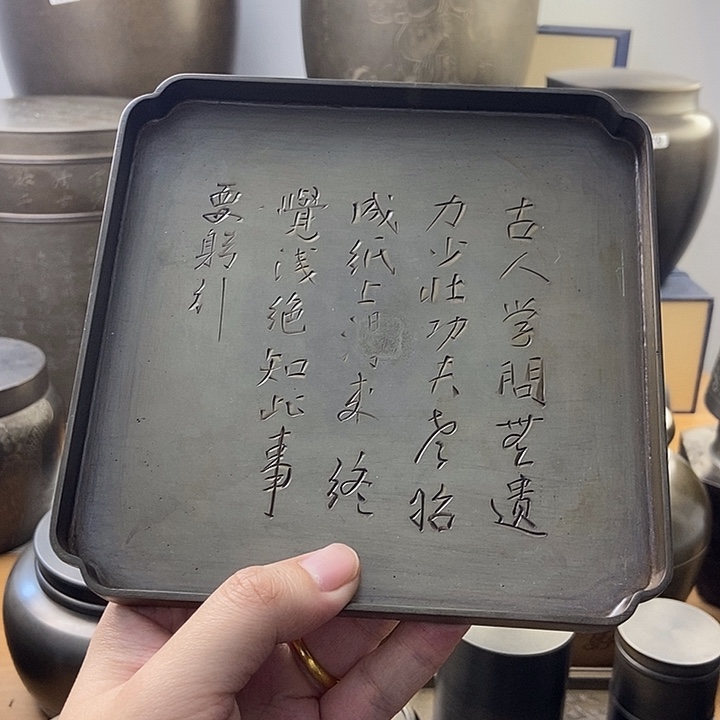 古人学問無遺
力少壮功夫老始
成紙上得来終
覺浅絶知此事
要躬行